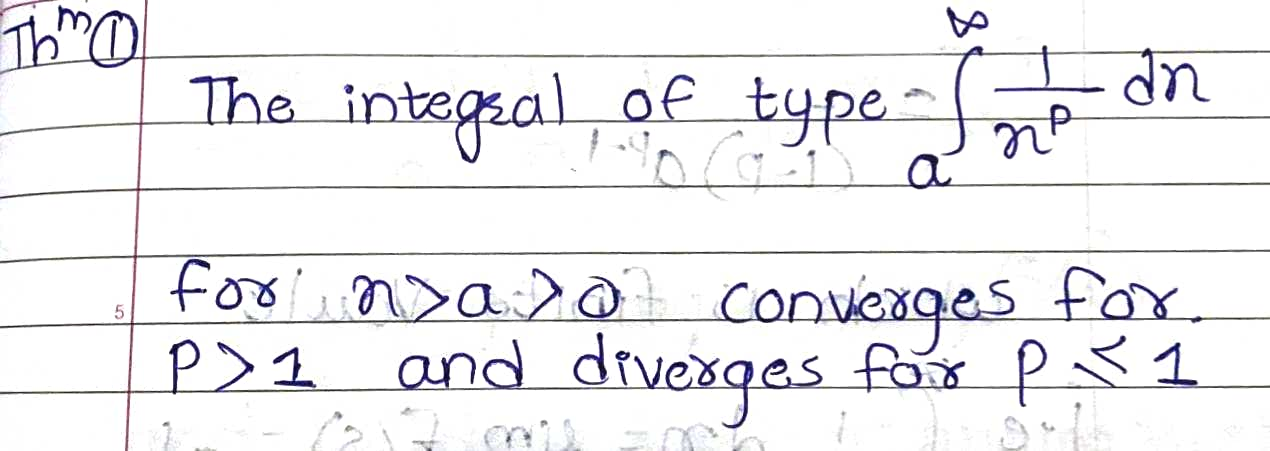 Thm ①
The integral of type - ∫ₐ^∞ 1/xᵖ dx
5 for x>a>0 converges for.
P>1 and diverges for P ≤ 1